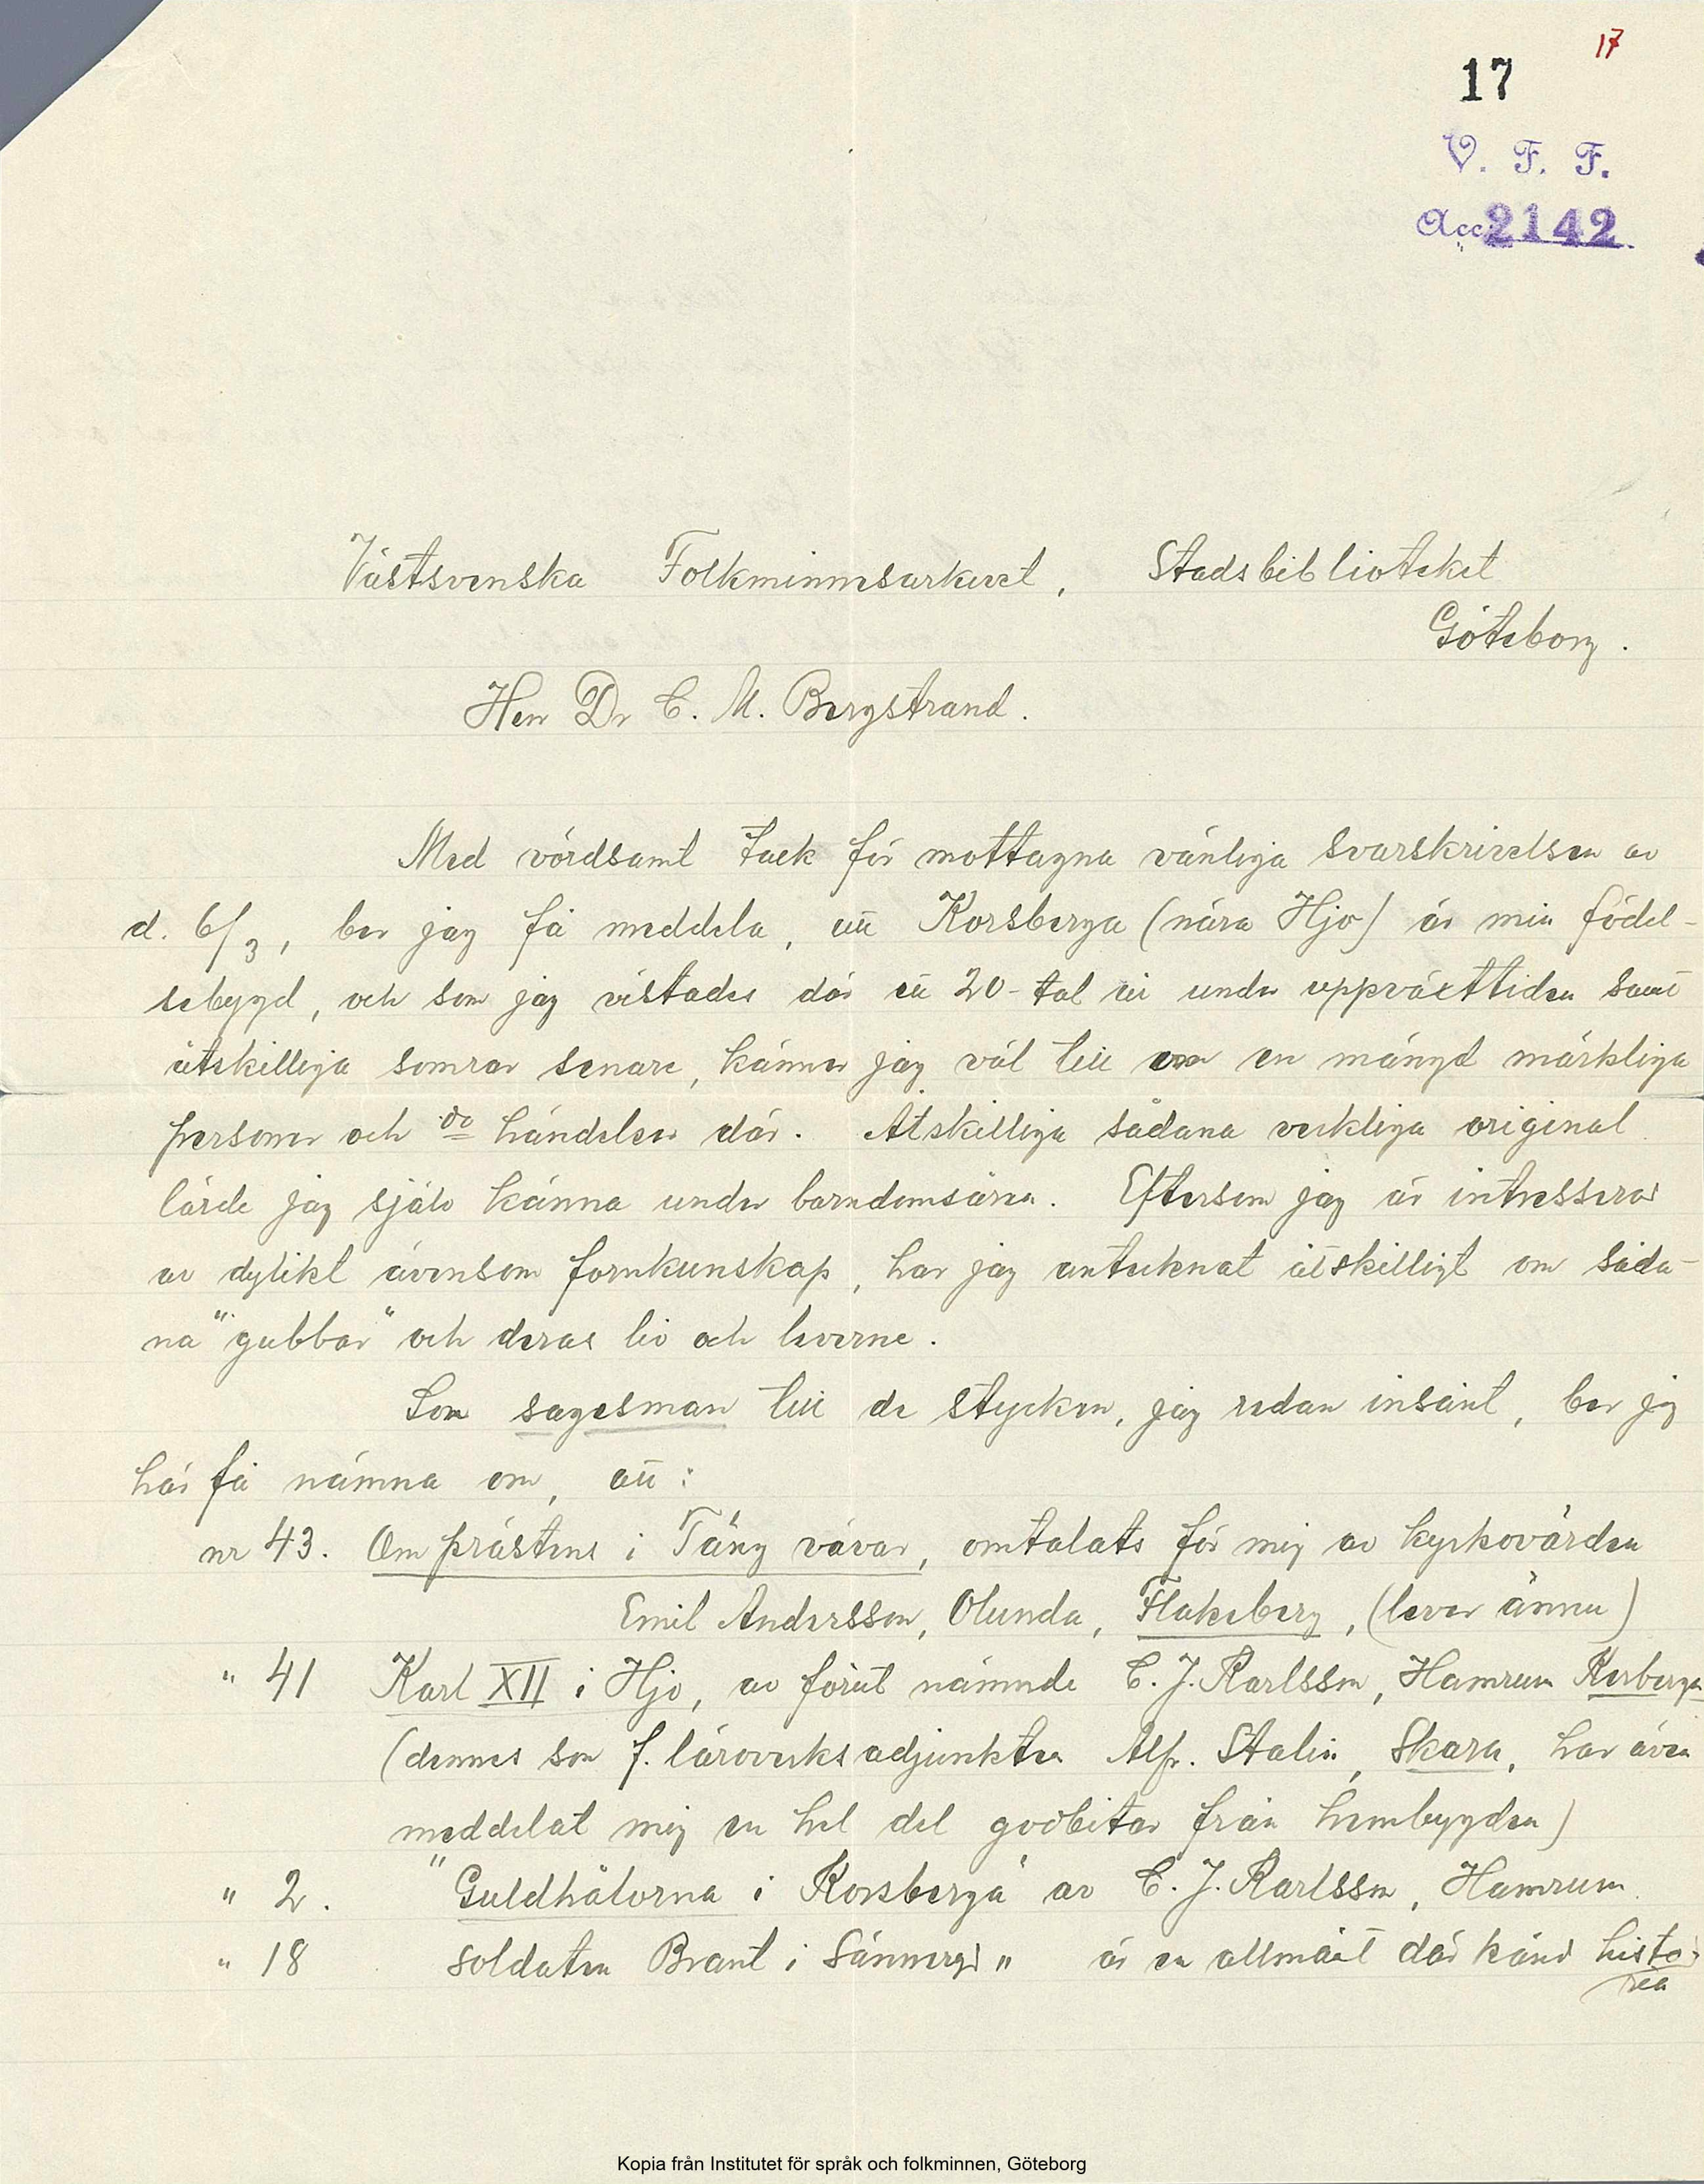 17
17
V. F. F.
Acc. 2142.
Västsvenska Folkminnesarkivet, Stadsbiblioteket
Göteborg.
Herr Dr C. M. Bergstrand.
Med vördsamt tack för mottagna vänliga svarskrivelsen av
d. 6/3, ber jag få meddela, att Korsberga (nära Hjo) är min födel-
sebygd, och som jag vistades där ett 20-tal år under uppväxttiden samt
åtskilliga somrar senare, känner jag väl till en mängd märkliga
personer och do händelser där. Åtskilliga sådana verkliga original
lärde jag själv känna under barndomsåren. Eftersom jag är intresserad
av dylikt ävensom fornkunskap, har jag antecknat åtskilligt om såda-
na "gubbar" och deras liv och leverne.
Som sagesman till de stycken, jag redan insänt, ber jag
här få nämna om, att:
nr 43. Om prästens i Täng vävar, omtalats för mig av kyrkovärden
Emil Andersson, Olunda, Flakeberg, (lever ännu)
" 41 Karl XII i Hjo, av förut nämnde C. J. Karlsson, Hamrum Korsberga
(dennes son f. läroverksadjunkten Alfr. Stalin, Skara, har även
meddelat mig en hel del godbitar från hembygden)
" 2. "Guldhålorna i Korsberga" av C. J. Karlsson, Hamrum
" 18 soldaten Brant i Sännergd " är en allmänt där känd histo-
ria
Kopia från Institutet för språk och folkminnen, Göteborg